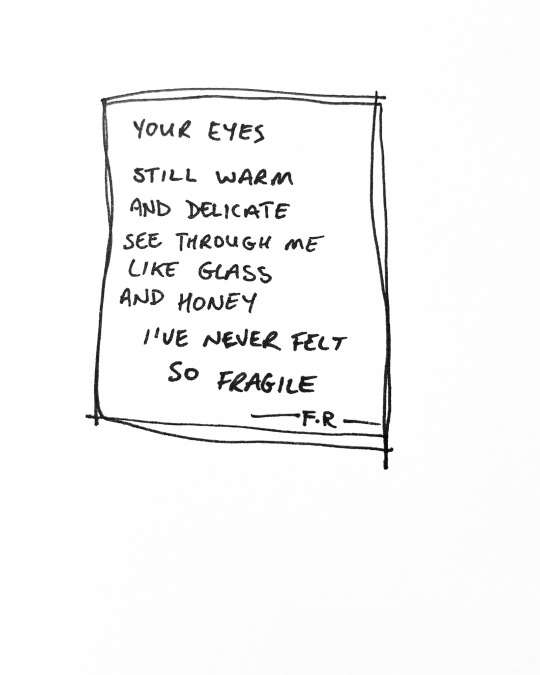 YOUR EYES
STILL WARM
AND DELICATE
SEE THROUGH ME
LIKE GLASS
AND HONEY
I'VE NEVER FELT
SO FRAGILE
F.R